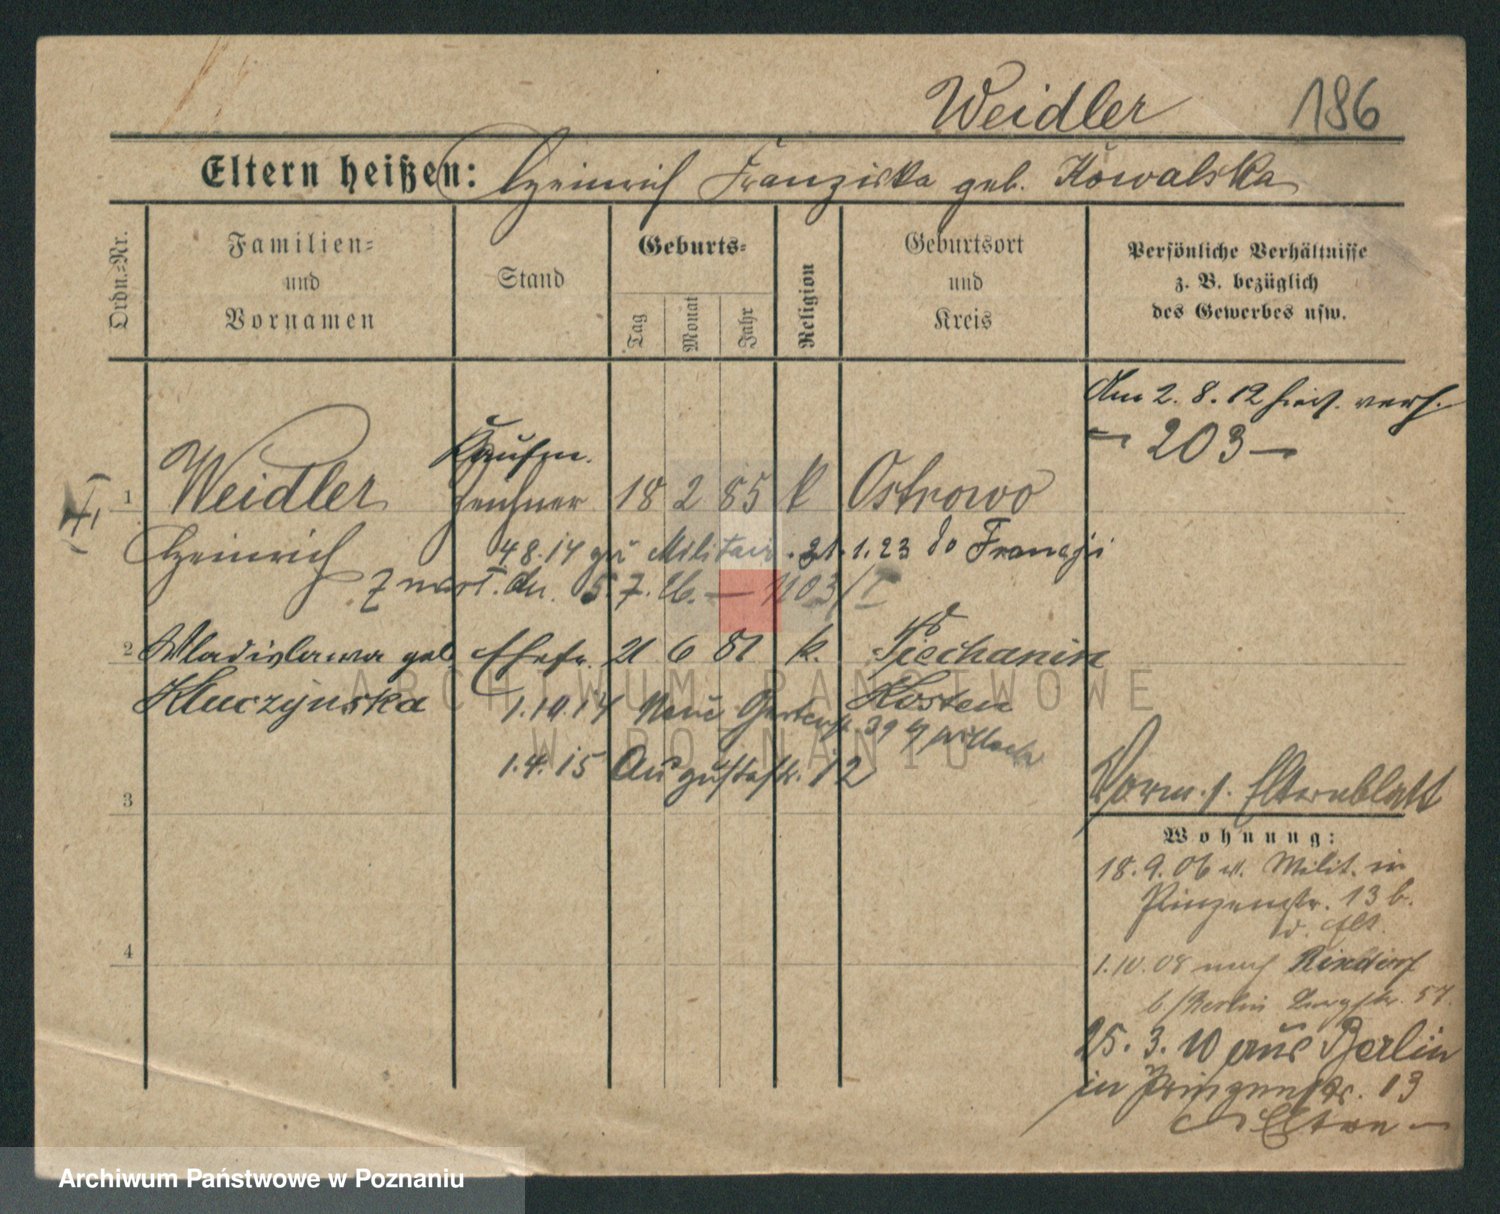 Weidler 186
Eltern heißen: Heinrich Franziska geb. Kowalska
Ordn.-Nr.
Familien-
und
Vornamen
Stand
Geburts-
Tag
Monat
Jahr
Religion
Geburtsort
und
Kreis
Persönliche Verhältnisse
z. B. bezüglich
des Gewerbes usw.
Am 2. 8. 12 hies. verh.
— 203 —
Kaufm.
1 Weidler 18 2 85 k Ostrowo
Heinrich 4 8. 14 zu Militair. 31. 1. 23 do
5. 7. 16. — 1103/I
2 Wladislawa geb. Ehefr. 21 6 81 k. Piechanin
Kluczynska Kosten
1. 10 14 Neue Gartenstr. 39
1. 4. 15 Augustastr. 12
3
4
Vorm. s. Elternblatt
Wohnung:
18. 9. 06 v. Milit. in
Prinzenstr. 13 b.
d. Elt.
1. 10. 08 nach Rixdorf
b/Berlin 57.
25. 3. 10 aus Berlin
in Prinzenstr. 13
Eltern —
ARCHIWUM PAŃSTWOWE
W POZNANIU
Archiwum Państwowe w Poznaniu